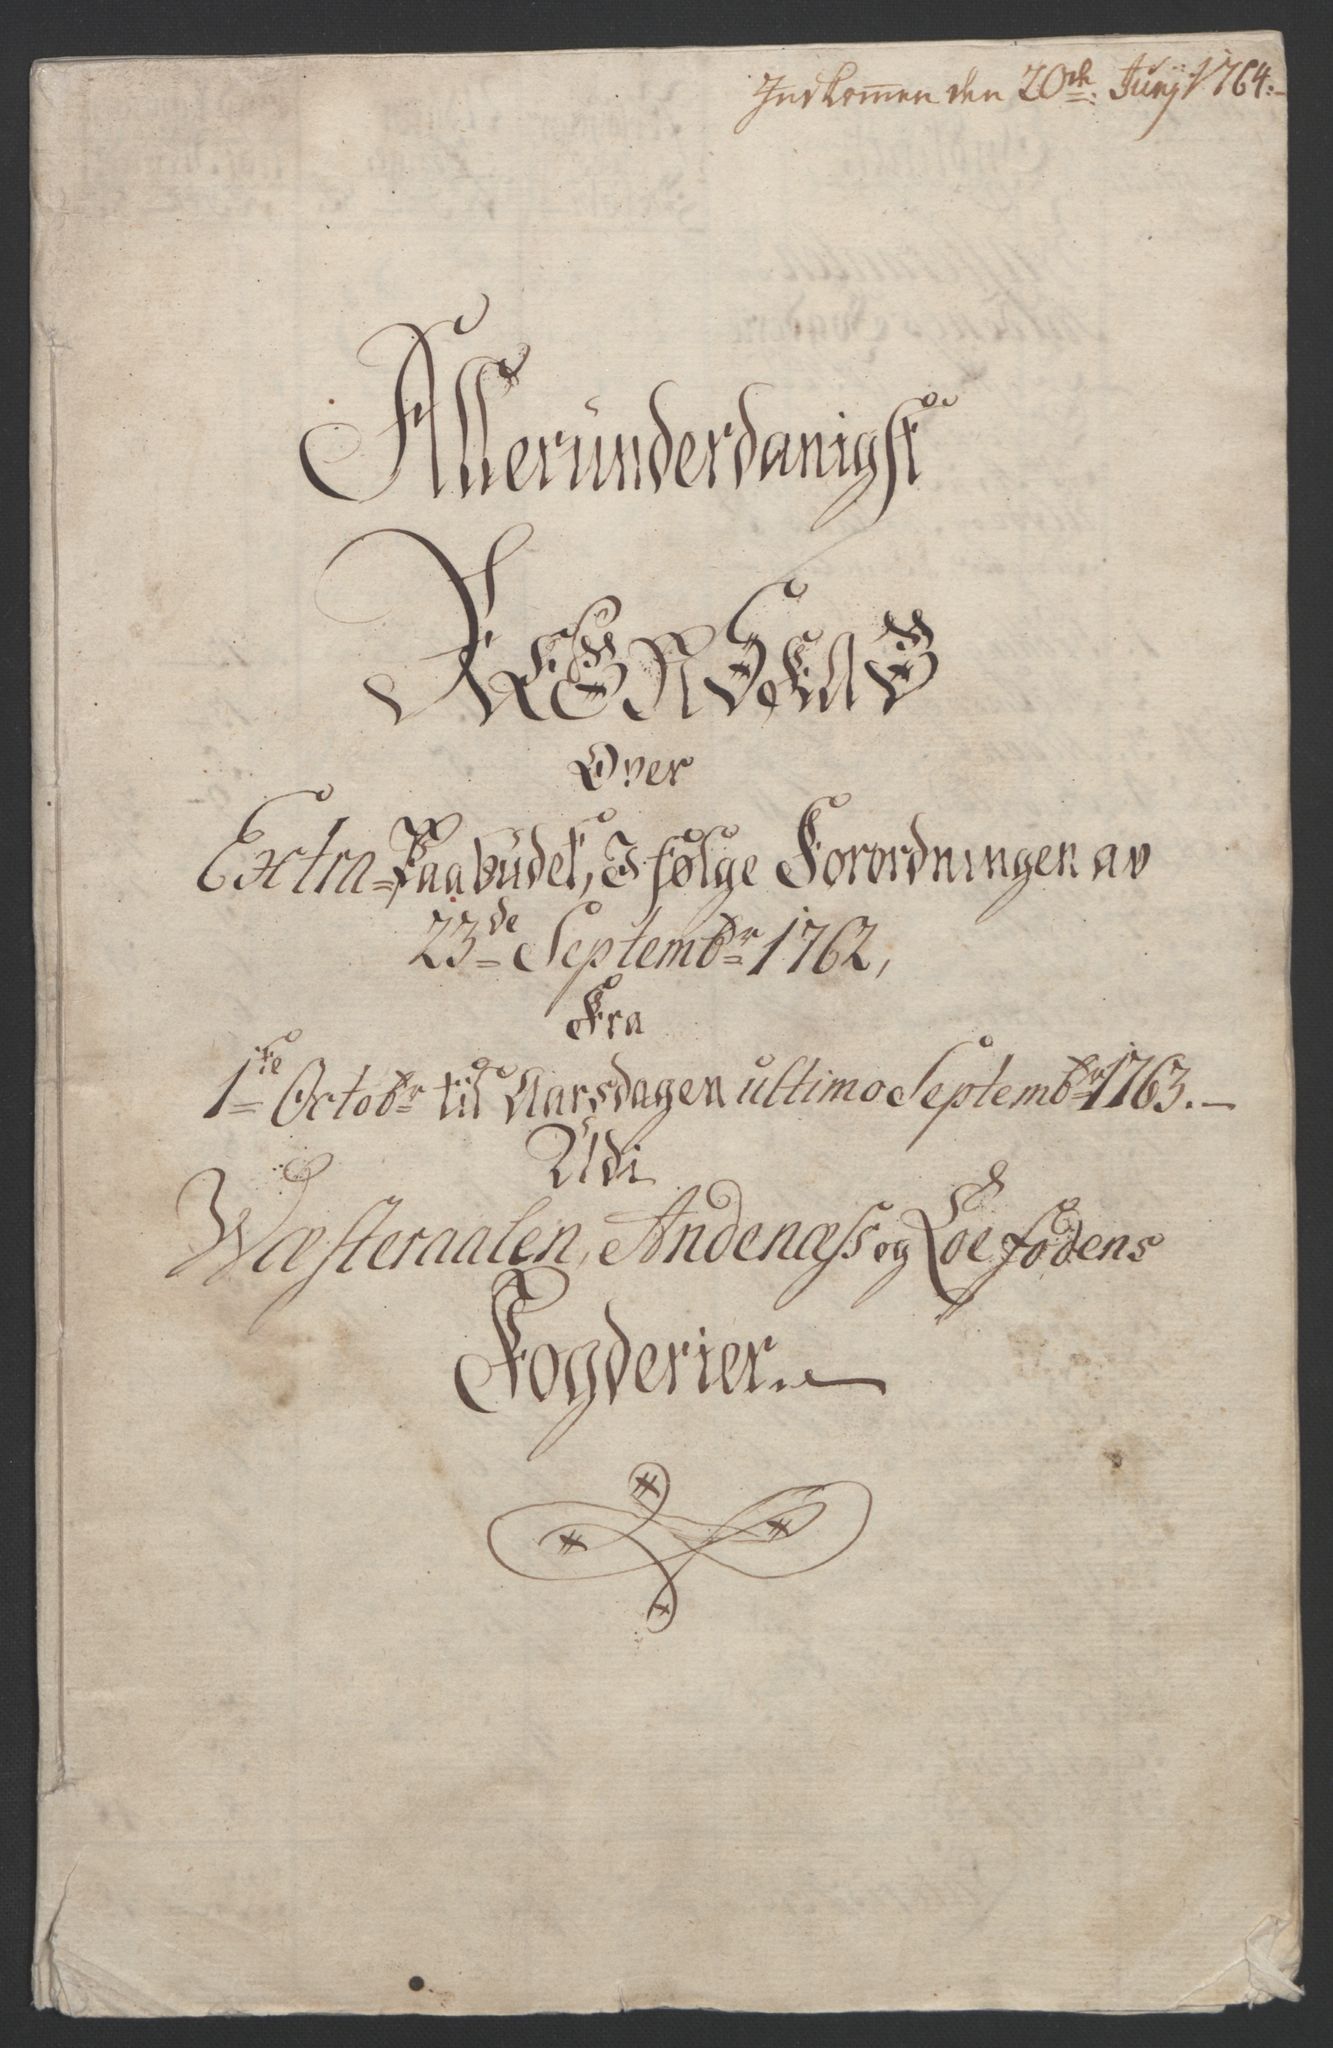 Indkommen den 20de Junij 1764.-
Alleründerdanigst
REGNSKAB
Over
Extra-Paabudet, I følge Forordningen av
23de Septembr 1762,
Fra
1te Octobr til Aarsdagen ultimo Septembr 1763.-
Udi
Wæsteraalen, Andenæss og Loefodens
Fogderier.-